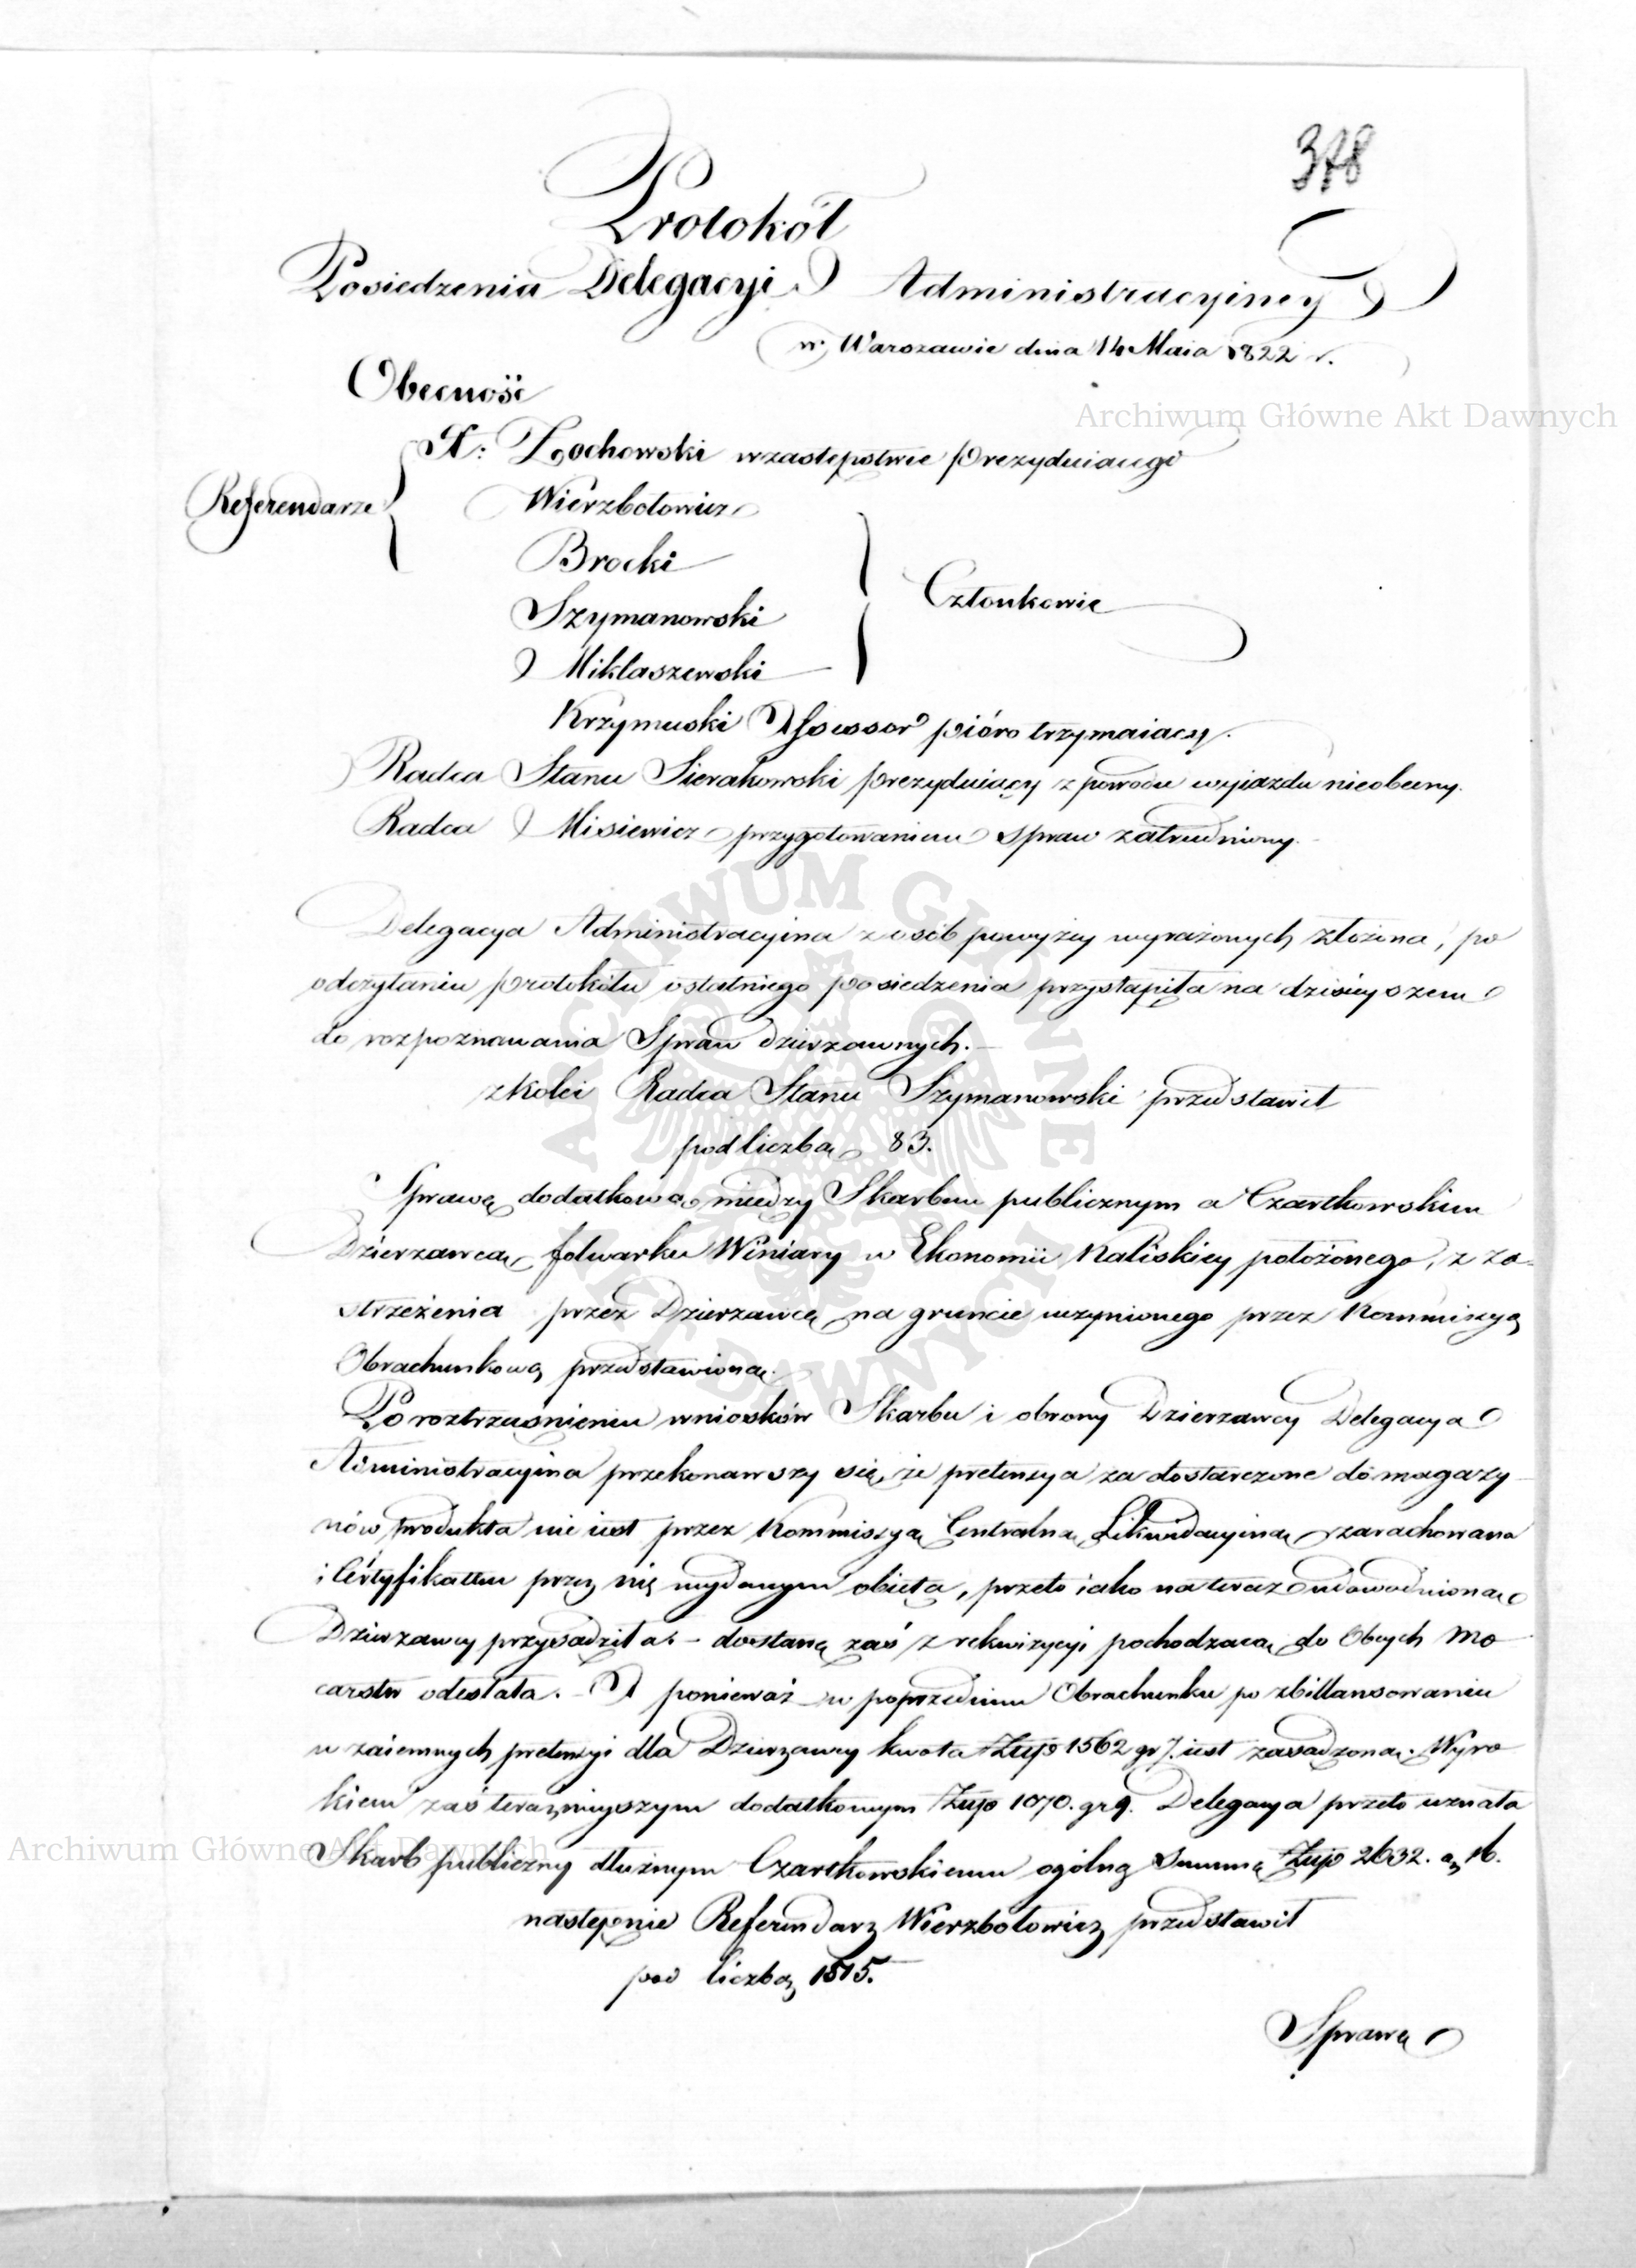 378
Protokół
Posiedzenia Delegacyi Administracyiney
w Warszawie dnia 14 Maia 1822 r.
Obecność
Archiwum Główne Akt Dawnych
X: Żochowski w zastępstwie Prezyduiącego
Referendarze
Wierzbołowicz
Brocki
Członkowie
Szymanowski
Miklaszewski
Krzymuski Assessor pióro trzymaiący.
Radca Stanu Sierakowski prezyduiący z powodu wyjazdu nieobecny.
Radca Misiewicz przygotowaniem spraw zatrudniony.
Delegacya Administracyina z osób powyżey wyrażonych złożona, po
odczytaniu protokółu ostatniego posiedzenia przystąpiła na dzisieyszem
do rozpoznawania Spraw dzierzawnych.
z kolei Radca Stanu Szymanowski przedstawił
pod liczbą 83.
Sprawę dodatkową między Skarbem publicznym a Czartkowskim
Dzierzawcą folwarku Winiary w Ekonomii Kaliskiey położonego, z za-
strzeżenia przez Dzierzawcę na gruncie uczynionego przez Kommissyą
Obrachunkową przedstawioną.
Po roztrząśnieniu wniosków Skarbu i obrony Dzierzawcy Delegacya
Administracyina przekonawszy się, że pretensya za dostarczone do magazy-
nów produkta nie iest przez Kommissyą Centralną Likwidacyiną zarachowana
i Certyfikatem przez nię wydanym obięta, przeto iako na teraz udowodnioną
Dzierzawcy przysądziła. - dostawę zaś z rekwizycyi pochodzącą do Obcych Mo-
carstw odesłała. - A ponieważ w poprzednim Obrachunku po zbillansowaniu
wzaiemnych pretensyi dla Dzierzawcy kwota Złtp 1562 gr 7. iest zasądzoną. Wyro-
kiem zaś teraznieyszym dodatkowym Złtp 1070. gr 9. Delegacya przeto uznała
Archiwum Główne Akt Dawnych
Skarb publiczny dłużnym Czartkowskiemu ogólną Summę Złtp 2632. gr 16.
następnie Referendarz Wierzbołowicz przedstawił
pod liczbą 1515.
Sprawę
ARCHIWUM GŁÓWNE AKT DAWNYCH